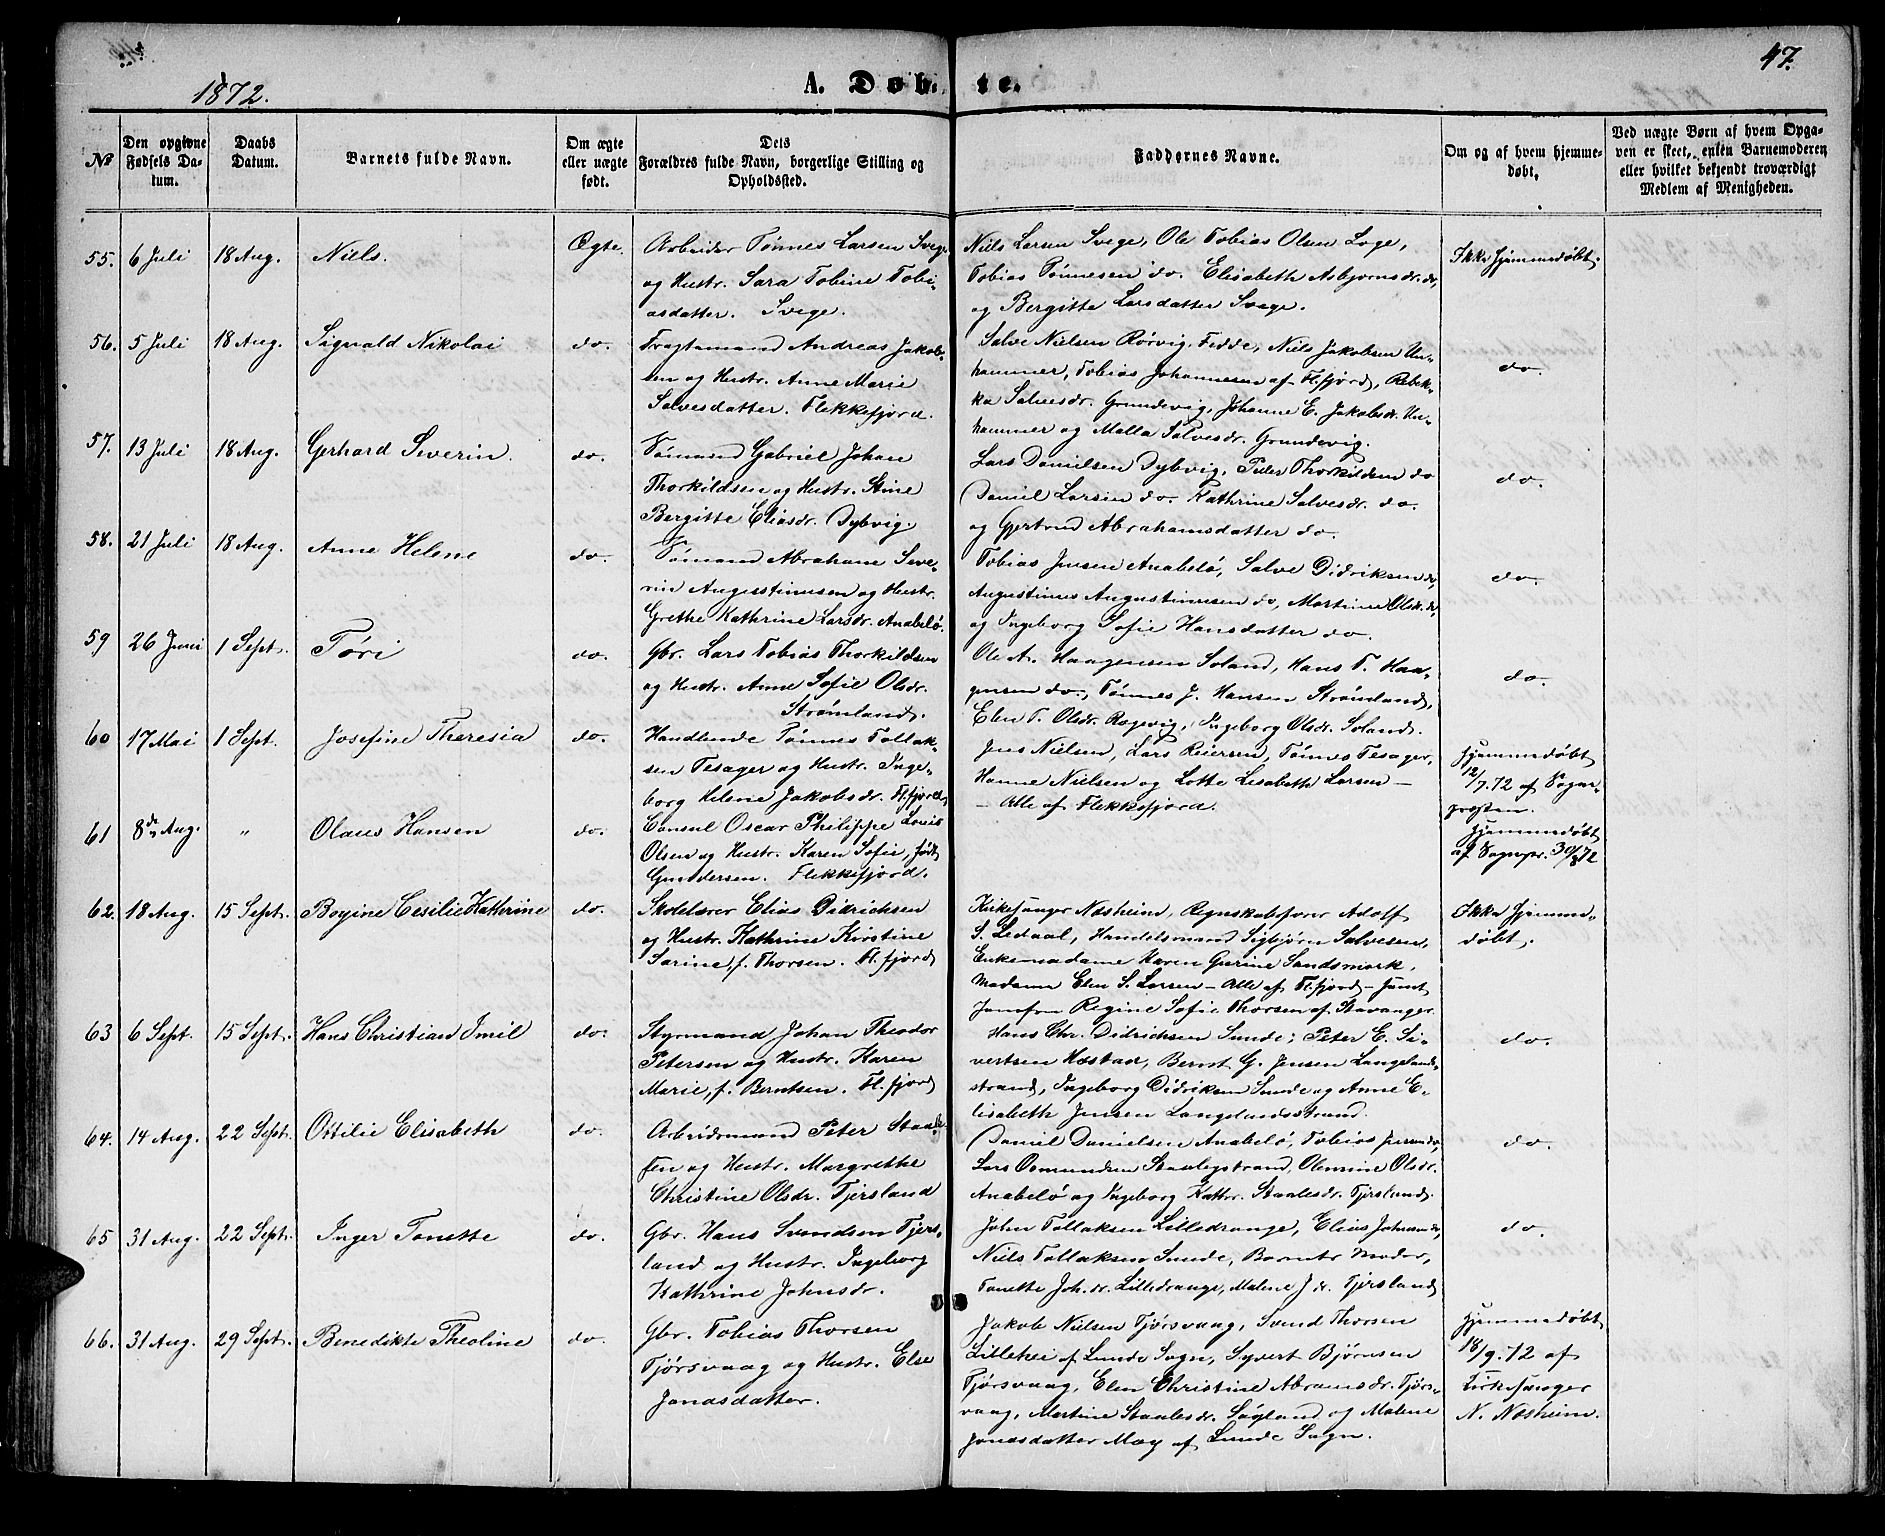 47.
1872.
A. Døbte.
No
Den opgivne Fødsels Datum.
Daabs Datum.
Barnets fulde Navn.
Om ægte eller uægte født.
Dets Forældres fulde Navn, borgerlige Stilling og Opholdssted.
Faddernes Navne.
Om og af hvem hjemmedøbt.
Ved uægte Børn af hvem Opgaven er skeet, enten Barnemoderen eller hvilket bekjendt troværdigt Medlem af Menigheden.
55. 6 Juli 18 Aug. Niels. Ægte.
Arbeider Tønnes Larsen Svege
og Hustr. Sara Tobine Tobi-
asdatter. Svege.
Niels Larsen Svege, Ole Tobias Olsen Loge,
Tobias Tønnesen do. Elisabeth Asbjørnsdr. do,
og Bergitte Larsdatter Svege.
Ikke hjemmedøbt.
56. 5 Juli 18 Aug. Sigvald Nikolai do.
Fragtemand Andreas Jakob-
sen og Hustr. Anne Marie
Salvesdatter. Flekkefjord.
Salve Nielsen Rørvig, Fedde, Niels Jakobsen Un-
hammer, Tobias Johannesen af Fl.fjord, Rebek-
ka Salvesdr. Grundevig, Johanne E. Jakobsdr. Un-
hammer og Malla Salvesdr. Grundevig.
do.
57. 13 Juli 18 Aug. Gerhard Severin. do.
Sømand Gabriel Johan
Thorkildsen og Hustr. Stine
Bergitte Eliasdr. Dybvig.
Lars Danielsen Dybvig, Peder Thorkildsen do
Daniel Larsen do. Kathrine Salvesdr. do.
og Gjertrud Abrahamsdatter do.
do.
58. 21 Juli 18 Aug. Anne Helene do.
Sømand Abraham Seve-
rin Augustinusen og Hustr.
Grethe Kathrine Larsdr. Anabelø.
Tobias Jensen Anabelø, Salve Didriksen do,
Augustinus Augustinusen do, Martine Olsdr. do
og Ingeborg Sofie Hansdatter do.
do.
59 26 Juni 1 Sept. Tøri do.
Gbr. Lars Tobias Thorkildsen
og Hustr. Anne Sofie Olsdr.
Strømland.
Ole A. Haagensen Soland, Hans T. Haa-
gensen do., Tønnes J. Hansen Strømland,
Elen T. Olsdr. Rægevig, Ingeborg Olsdr. Soland.
do.
60 17 Mai 1 Sept. Josefine Theresia do.
Handlende Tønnes Tollak-
sen Tesager og Hustr. Inge-
borg Helene Jakobsdr. Fl.fjord.
Jens Nielsen, Lars Reiersen, Tønnes Tesager,
Hanne Nielsen og Lotte Lisabeth Larsen –
– Alle af Flekkefjord.
Hjemmedøbt
12/7.72 af Sogne-
præsten.
61 8de Aug. " Olaus Hansen do.
Consul Oscar Philippe Louis
Olsen og Hustr. Karen Sofie, født
Gundersen. Flekkefjord.
Hjemmedøbt
af Sognepr. 30/8 72
62. 18 Aug. 15 Sept. Boyine Cesilie Kathrine do.
Skolelærer Elias Didrichsen
og Hustr. Kathrine Kirstine
Sarine, f. Thorsen. Fl.fjord
Kirkesanger Næsheim, Regnskabsfører Adolf
S. Ledaal, Handelsmand Sigbjørn Salvesen,
Enkemadame Karen Gurine Sandsmark,
Madame Elen S. Larsen – Alle af Fl.fjord – Samt
Jomfru Regine Sofie Thorsen af Stavanger.
Ikke hjemme-
døbt.
63 6 Sept. 15 Sept. Hans Christian Emil do.
Styrmand Johan Theodor
Petersen og Hustr. Karen
Marie, f. Berntsen. Fl.fjord
Hans Chr. Didrichsen Sunde, Peter E. Si-
vertsen Høstad, Bernt G. Jensen Langeland-
strand, Ingeborg Didriksen Sunde og Anne E-
lisabeth Jensen Langelandsstrand.
do.
64. 14 Aug. 22 Sept. Ottilie Elisabeth do.
Arbeidsmand Peter Staale-
sen og Hustr. Margrethe
Christine Olsdr. Tjersland
Daniel Danielsen Anabelø, Tobias Jensen do,
Lars Osmundsen Staalegstrand, Olemine Olsdr.
Anabelø og Ingeborg Kathr. Staalesdr. Tjersland.
do.
65 31 Aug. 22 Sept. Inger Tonette do.
Gbr. Hans Svendsen Tjers-
land og Hustr. Ingeborg
Kathrine Johnsdr.
John Tollaksen Lilledrange, Elias Johnsen do,
Niels Tollaksen Sunde, Barnets Moder,
Tonette Joh.dr. Lilledrange, Malene J.dr. Tjersland
do.
66. 31 Aug. 29 Sept. Benedikte Theoline do.
Gbr. Tobias Thorsen
Tjørsvaag og Hustr. Else
Jonasdatter.
Jakob Nielsen Tjørsvaag, Svend Thorsen
Lillehei af Lunde Sogn, Syvert Bjørnsen
Tjørsvaag, Elen Christine Abramsdr. Tjørs-
vaag, Martine Staalesdr. Løgland og Malene
Jonasdatter Moy af Lunde Sogn.
Hjemmedøbt
18/9.72 af
Kirkesanger
N. Næsheim.